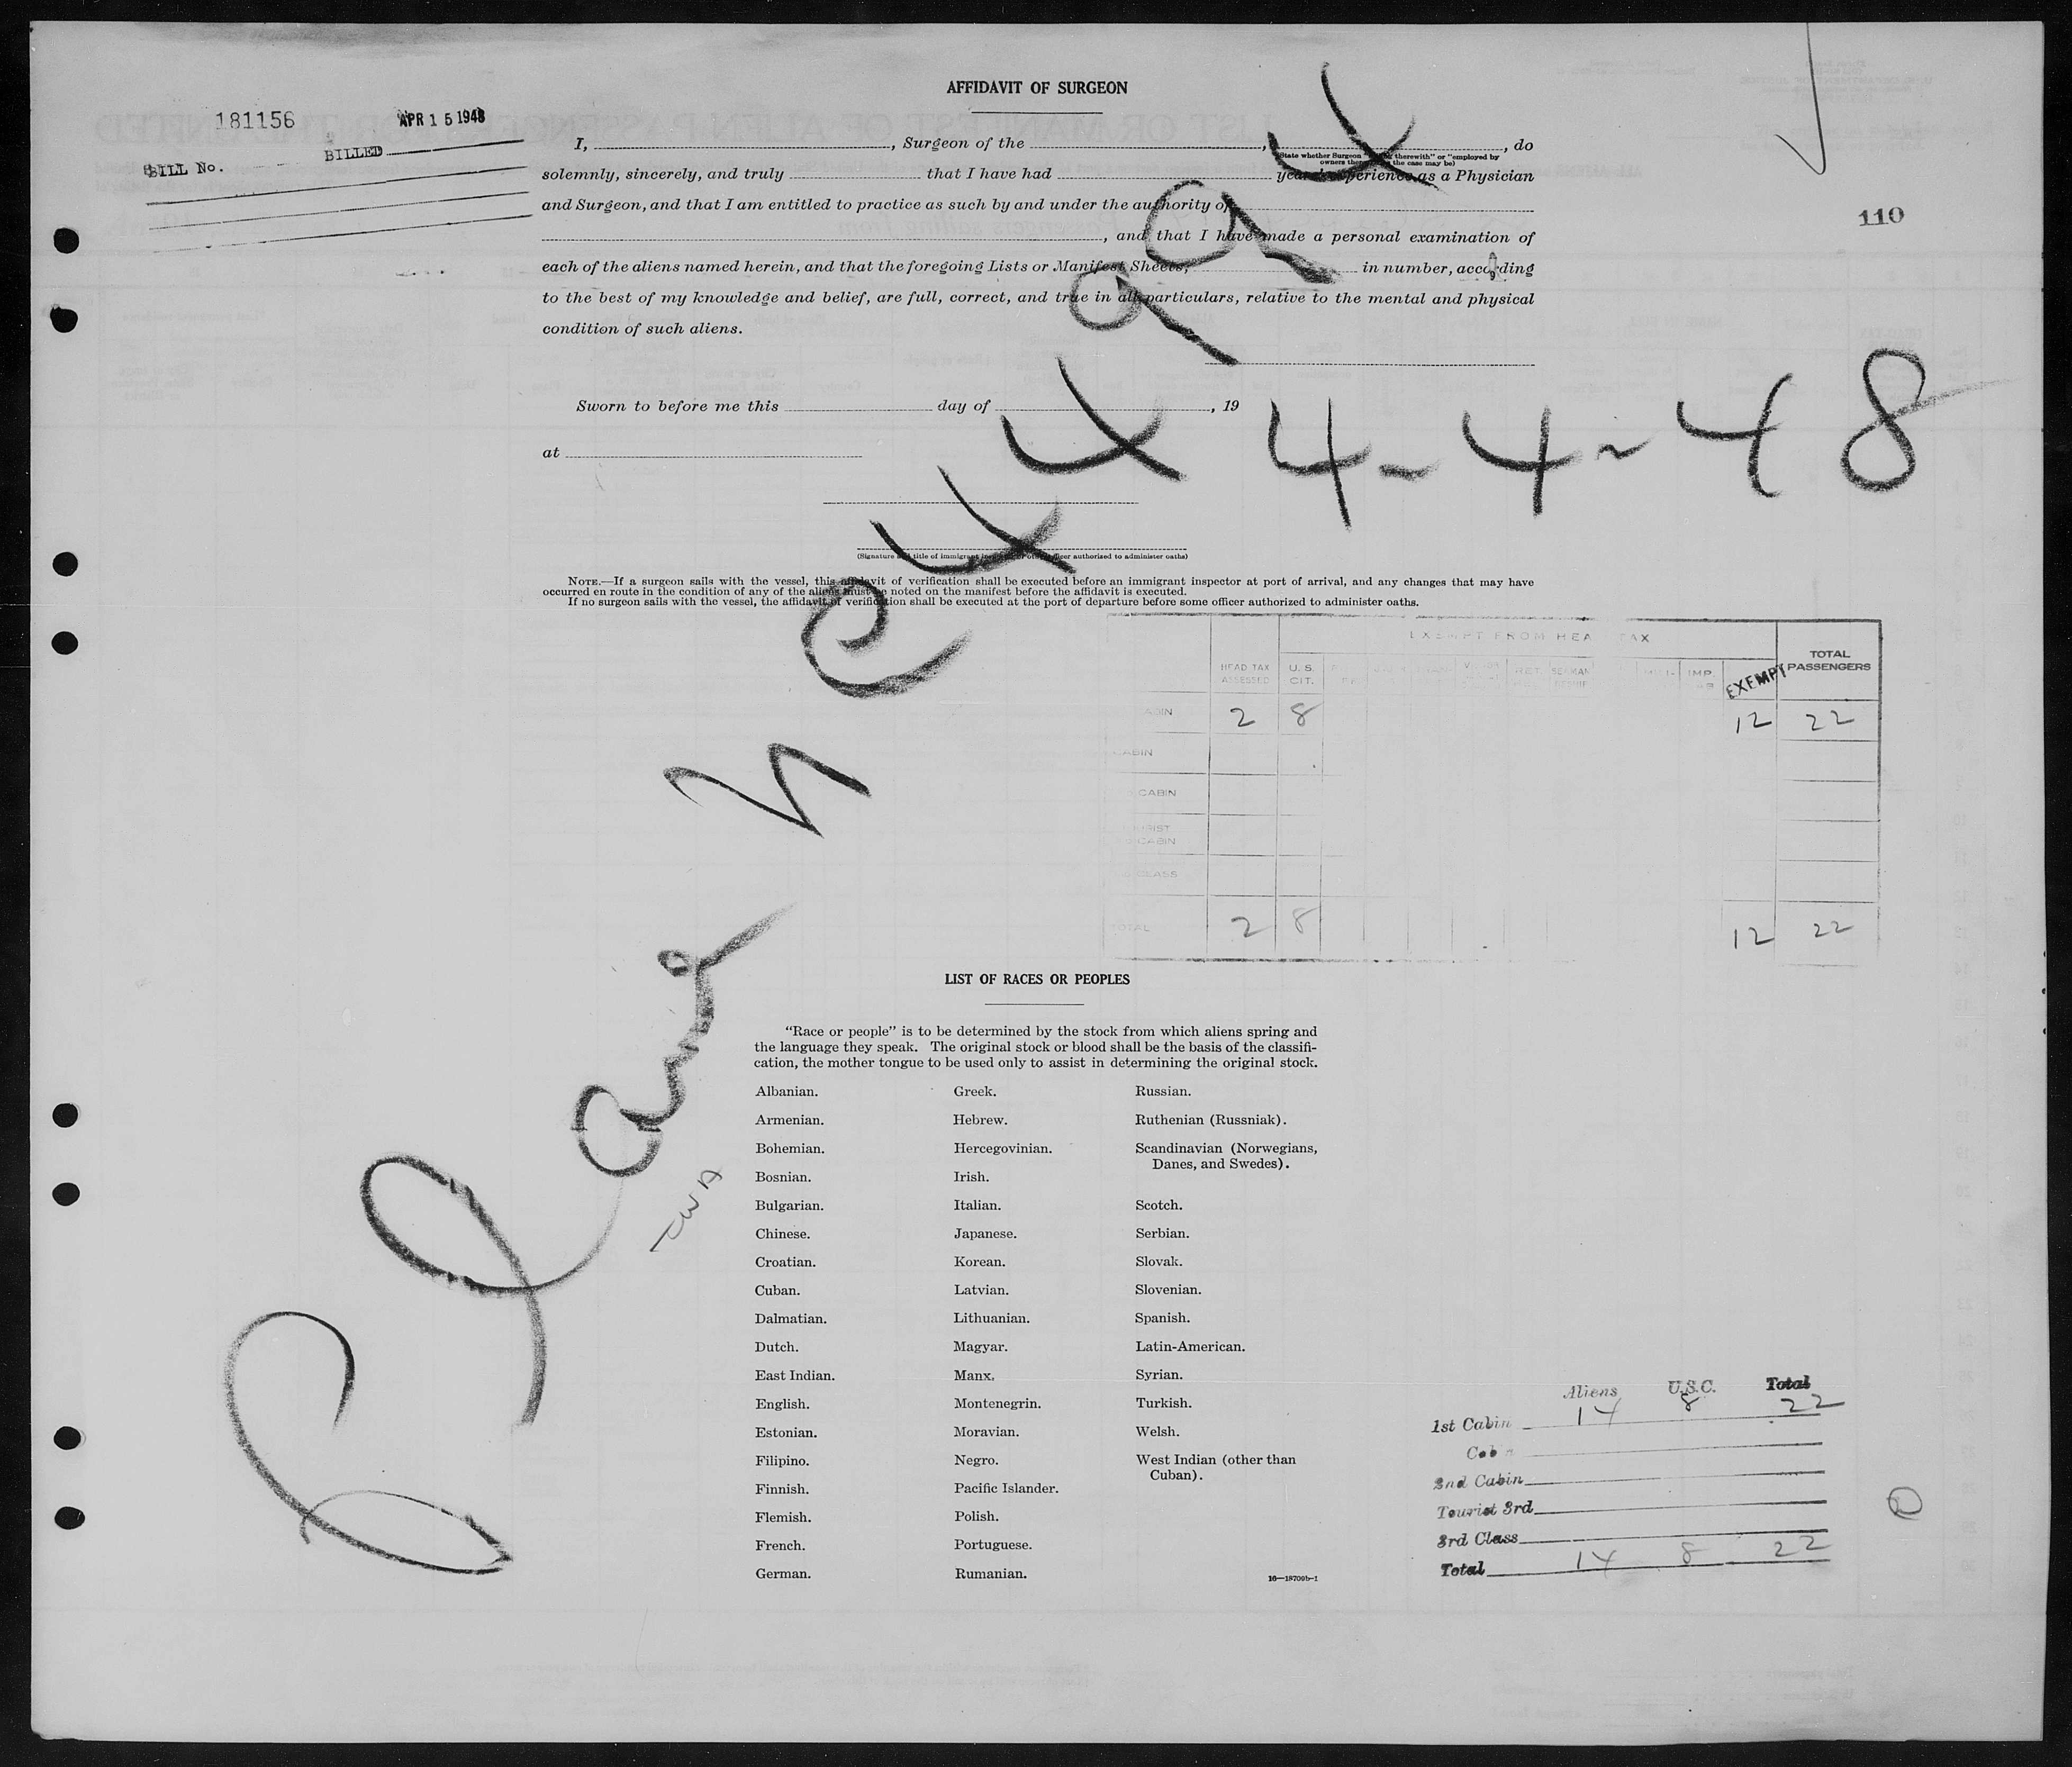 AFFIDAVIT OF SURGEON
181156
APR 15 1948
BILL No. BILLED
110
I, , Surgeon of the , , do
(State whether Surgeon therewith" or "employed by
owners the case may be)
solemnly, sincerely, and truly that I have had years' experience as a Physician
and Surgeon, and that I am entitled to practice as such by and under the authority of
, and that I have made a personal examination of
each of the aliens named herein, and that the foregoing Lists or Manifest Sheets, in number, according
to the best of my knowledge and belief, are full, correct, and true in all particulars, relative to the mental and physical
condition of such aliens.
Sworn to before me this day of , 19
at
(Signature and title of immigrant inspector or other officer authorized to administer oaths)
Plane N C 44 994
4-4-48
TWA
NOTE.—If a surgeon sails with the vessel, this affidavit of verification shall be executed before an immigrant inspector at port of arrival, and any changes that may have
occurred en route in the condition of any of the aliens must be noted on the manifest before the affidavit is executed.
If no surgeon sails with the vessel, the affidavit of verification shall be executed at the port of departure before some officer authorized to administer oaths.
EXEMPT FROM HEAD TAX
HEAD TAX ASSESSED U. S. CIT. RET. IMP. EXEMPT TOTAL PASSENGERS
CABIN 2 8 12 22
CABIN
CABIN
CABIN
CLASS
TOTAL 2 8 12 22
LIST OF RACES OR PEOPLES
"Race or people" is to be determined by the stock from which aliens spring and
the language they speak. The original stock or blood shall be the basis of the classifi-
cation, the mother tongue to be used only to assist in determining the original stock.
Albanian. Greek. Russian.
Armenian. Hebrew. Ruthenian (Russniak).
Bohemian. Hercegovinian. Scandinavian (Norwegians,
Danes, and Swedes).
Bosnian. Irish.
Bulgarian. Italian. Scotch.
Chinese. Japanese. Serbian.
Croatian. Korean. Slovak.
Cuban. Latvian. Slovenian.
Dalmatian. Lithuanian. Spanish.
Dutch. Magyar. Latin-American.
East Indian. Manx. Syrian.
English. Montenegrin. Turkish.
Estonian. Moravian. Welsh.
Filipino. Negro. West Indian (other than
Cuban).
Finnish. Pacific Islander.
Flemish. Polish.
French. Portuguese.
German. Rumanian.
16—18709b-1
Aliens U.S.C. Total
1st Cabin 14 8 22
Cabin
2nd Cabin
Tourist 3rd
3rd Class
Total 14 8 22